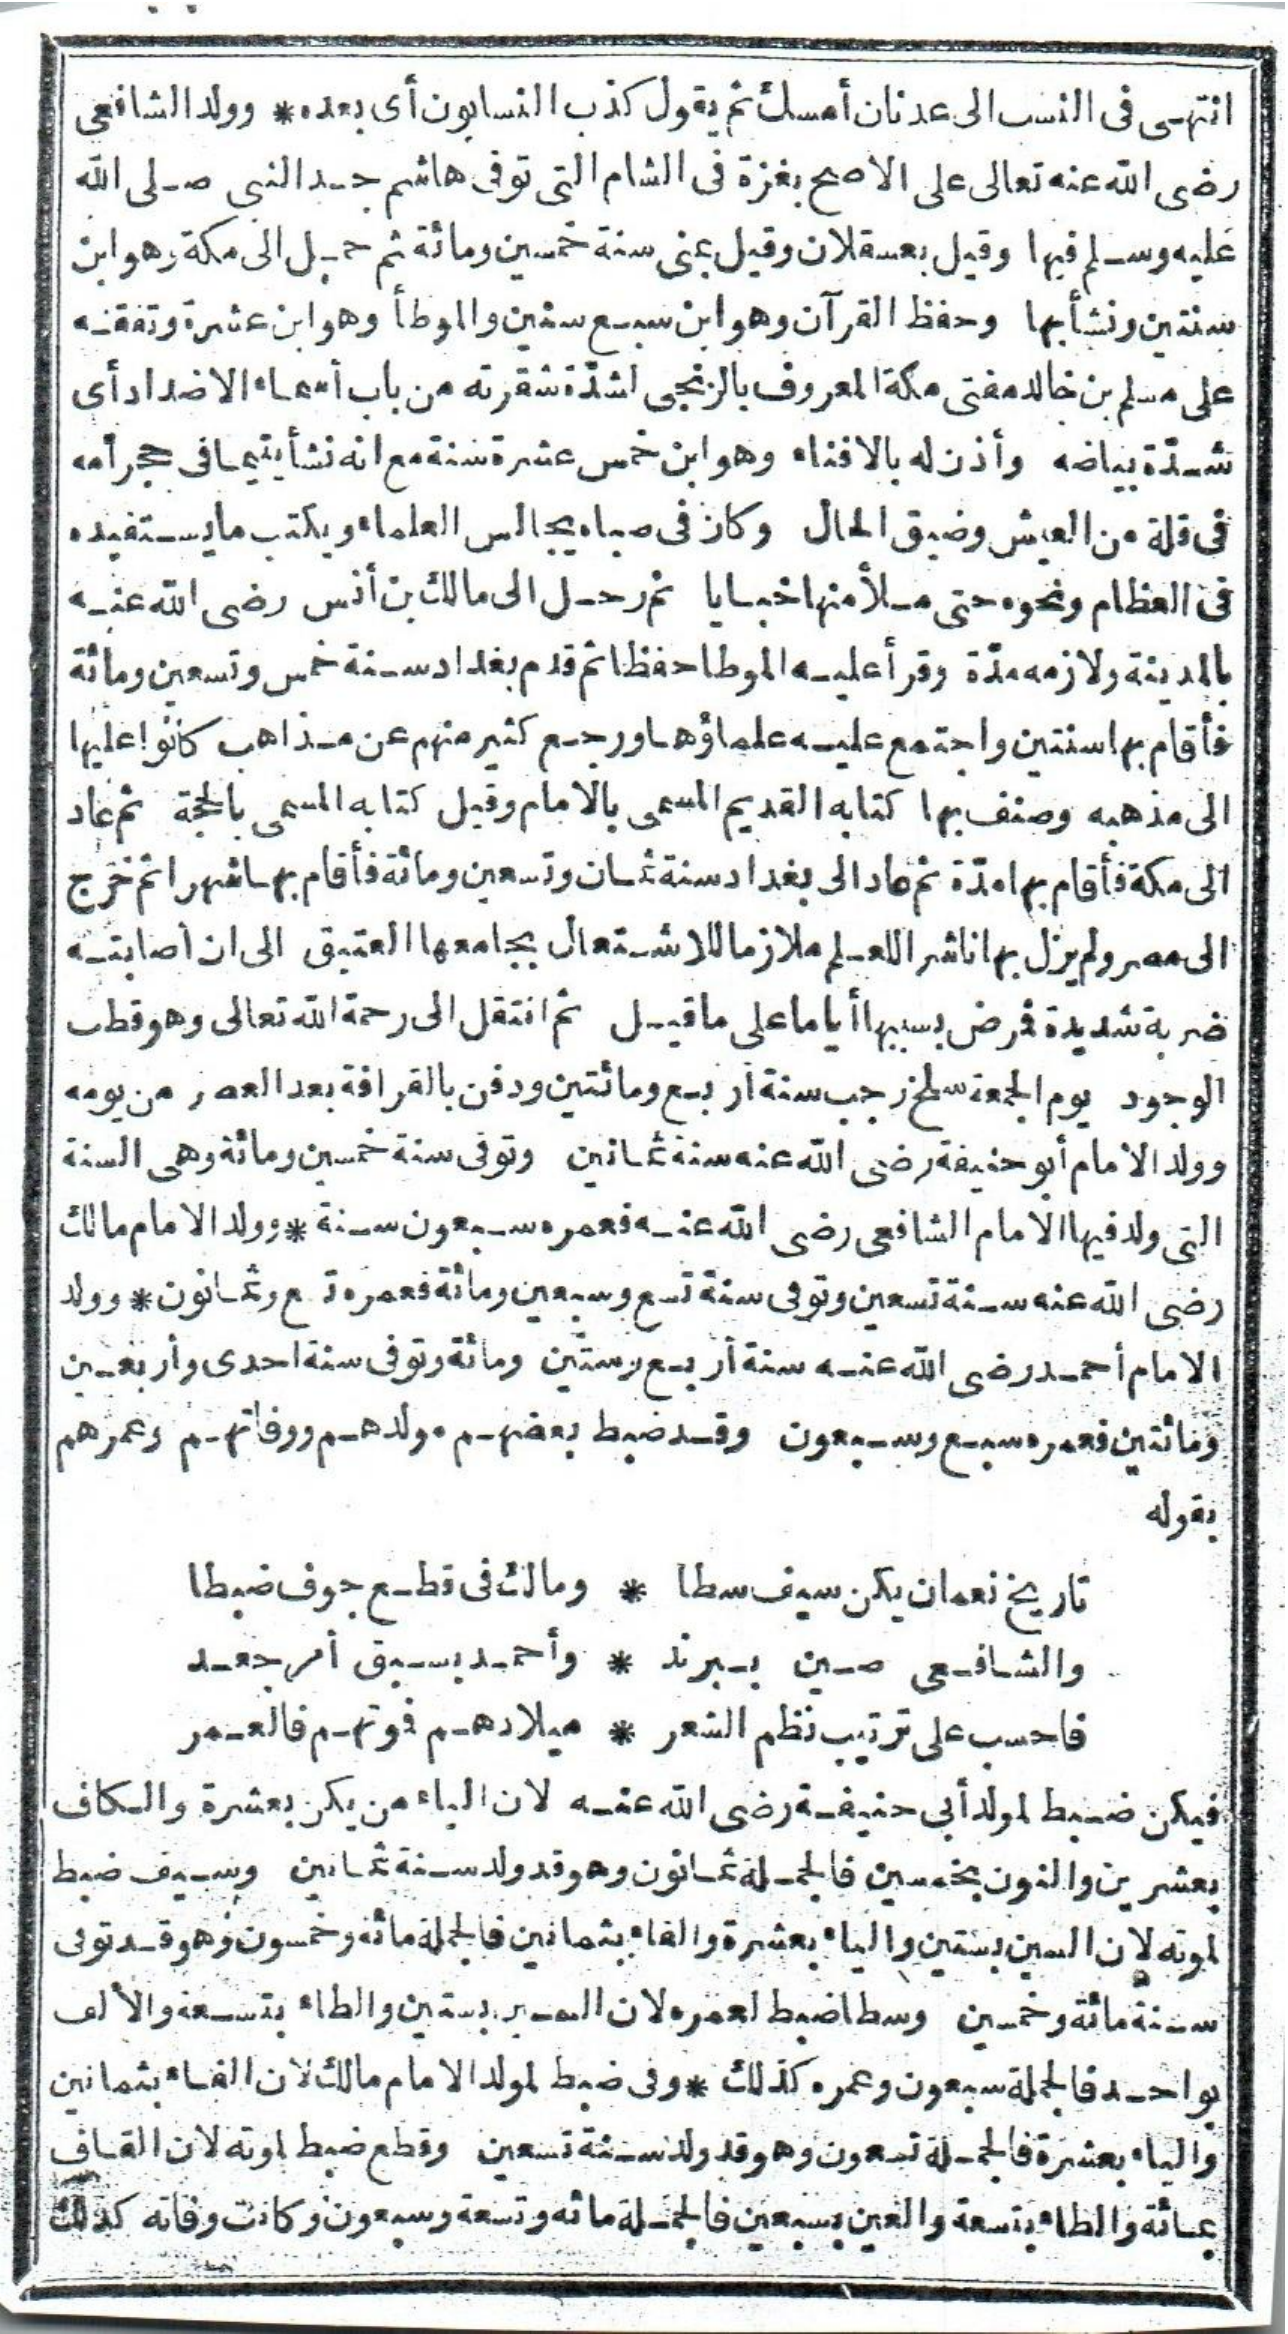 انتهى فى النسب الى عدنان أمسك ثم يقول كذب النسابون أى بعده * وولد الشافعى
رضى الله عنه تعالى على الاصح بغزة فى الشام التى توفى هاشم جد النبى صلى الله
عليه وسلم فيها وقيل بعسقلان وقيل بمنى سنة خمسين ومائة ثم حمل الى مكة وهو ابن
سنتين ونشأ بها وحفظ القرآن وهو ابن سبع سنين والموطأ وهو ابن عشرة وتفقه
على مسلم بن خالد مفتى مكة المعروف بالزنجى لشدّة شقرته من باب أسماء الاضداد أى
شدّة بياضه وأذن له بالافتاء وهو ابن خمس عشرة سنة مع انه نشأ يتيما فى حجر أمه
فى قلة من العيش وضيق الحال وكان فى صباه يجالس العلماء ويكتب ما يستفيده
فى العظام ونحوه حتى ملأ منها خبايا ثم رحل الى مالك بن أنس رضى الله عنه
بالمدينة ولازمه مدّة وقرأ عليه الموطا حفظا ثم قدم بغداد سنة خمس وتسعين ومائة
فأقام بها سنتين واجتمع عليه علماؤها ورجع كثير منهم عن مذاهب كانوا عليها
الى مذهبه وصنف بها كتابه القديم المسمى بالامام وقيل كتابه المسمى بالحجة ثم عاد
الى مكة فأقام بها مدّة ثم عاد الى بغداد سنة ثمان وتسعين ومائة فأقام بها شهرا ثم خرج
الى مصر ولم يزل بها ناشرا للعلم ملازما للاشتغال بجامعها العتيق الى ان أصابته
ضربة شديدة فمرض بسببها أياما على ما قيل ثم انتقل الى رحمة الله تعالى وهو قطب
الوجود يوم الجمعة سلخ رجب سنة أربع ومائتين ودفن بالقرافة بعد العصر من يومه
وولد الامام أبو حنيفة رضى الله عنه سنة ثمانين وتوفى سنة خمسين ومائة وهى السنة
التى ولد فيها الامام الشافعى رضى الله عنه فعمره سبعون سنة * وولد الامام مالك
رضى الله عنه سنة تسعين وتوفى سنة تسع وسبعين ومائة فعمره تسع وثمانون * وولد
الامام أحمد رضى الله عنه سنة أربع وستين ومائة وتوفى سنة احدى وأربعين
ومائتين فعمره سبع وسبعون وقد ضبط بعضهم مولدهم ووفاتهم وعمرهم
بقوله
تاريخ نعمان يكن سيف سطا * ومالك فى قطع جوف ضبطا
والشافعى صين ببرند * وأحمد بسبق أمر جعد
فاحسب على ترتيب نظم الشعر * ميلادهم فموتهم فالعمر
فيكن ضبط لمولد أبى حنيفة رضى الله عنه لان الياء من يكن بعشرة والكاف
بعشرين والنون بخمسين فالجملة ثمانون وهو قد ولد سنة ثمانين وسيف ضبط
لموته لان السين بستين والياء بعشرة والفاء بثمانين فالجملة مائة وخمسون وهو قد توفى
سنة مائة وخمسين وسطا ضبط لعمره لان السين بستين والطاء بتسعة والألف
بواحد فالجملة سبعون وعمره كذلك * وفى ضبط لمولد الامام مالك لان الفاء بثمانين
والياء بعشرة فالجملة تسعون وهو قد ولد سنة تسعين وقطع ضبط لموته لان القاف
بمائة والطاء بتسعة والعين بسبعين فالجملة مائة وتسعة وسبعون وكانت وفاته كذلك